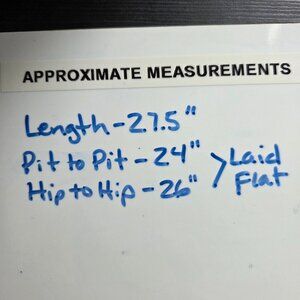 APPROXIMATE MEASUREMENTS
Length - 27.5"
Pit to Pit - 24" > Laid
Hip to Hip - 26" Flat